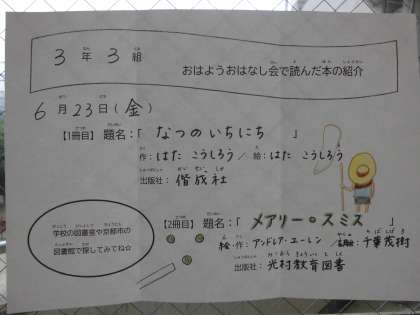 3年3組
おはようおはなし会で読んだ本の紹介
6月23日(金)
【1冊目】題名:「なつのいちにち」
作:はた こうしろう/絵:はた こうしろう
出版社:偕成社
学校の図書館や京都市の
図書館で探してみてね☆
【2冊目】題名:「メアリー・スミス」
絵・作:アンドレア・ユーレン/訳:千葉茂樹
出版社:光村教育図書